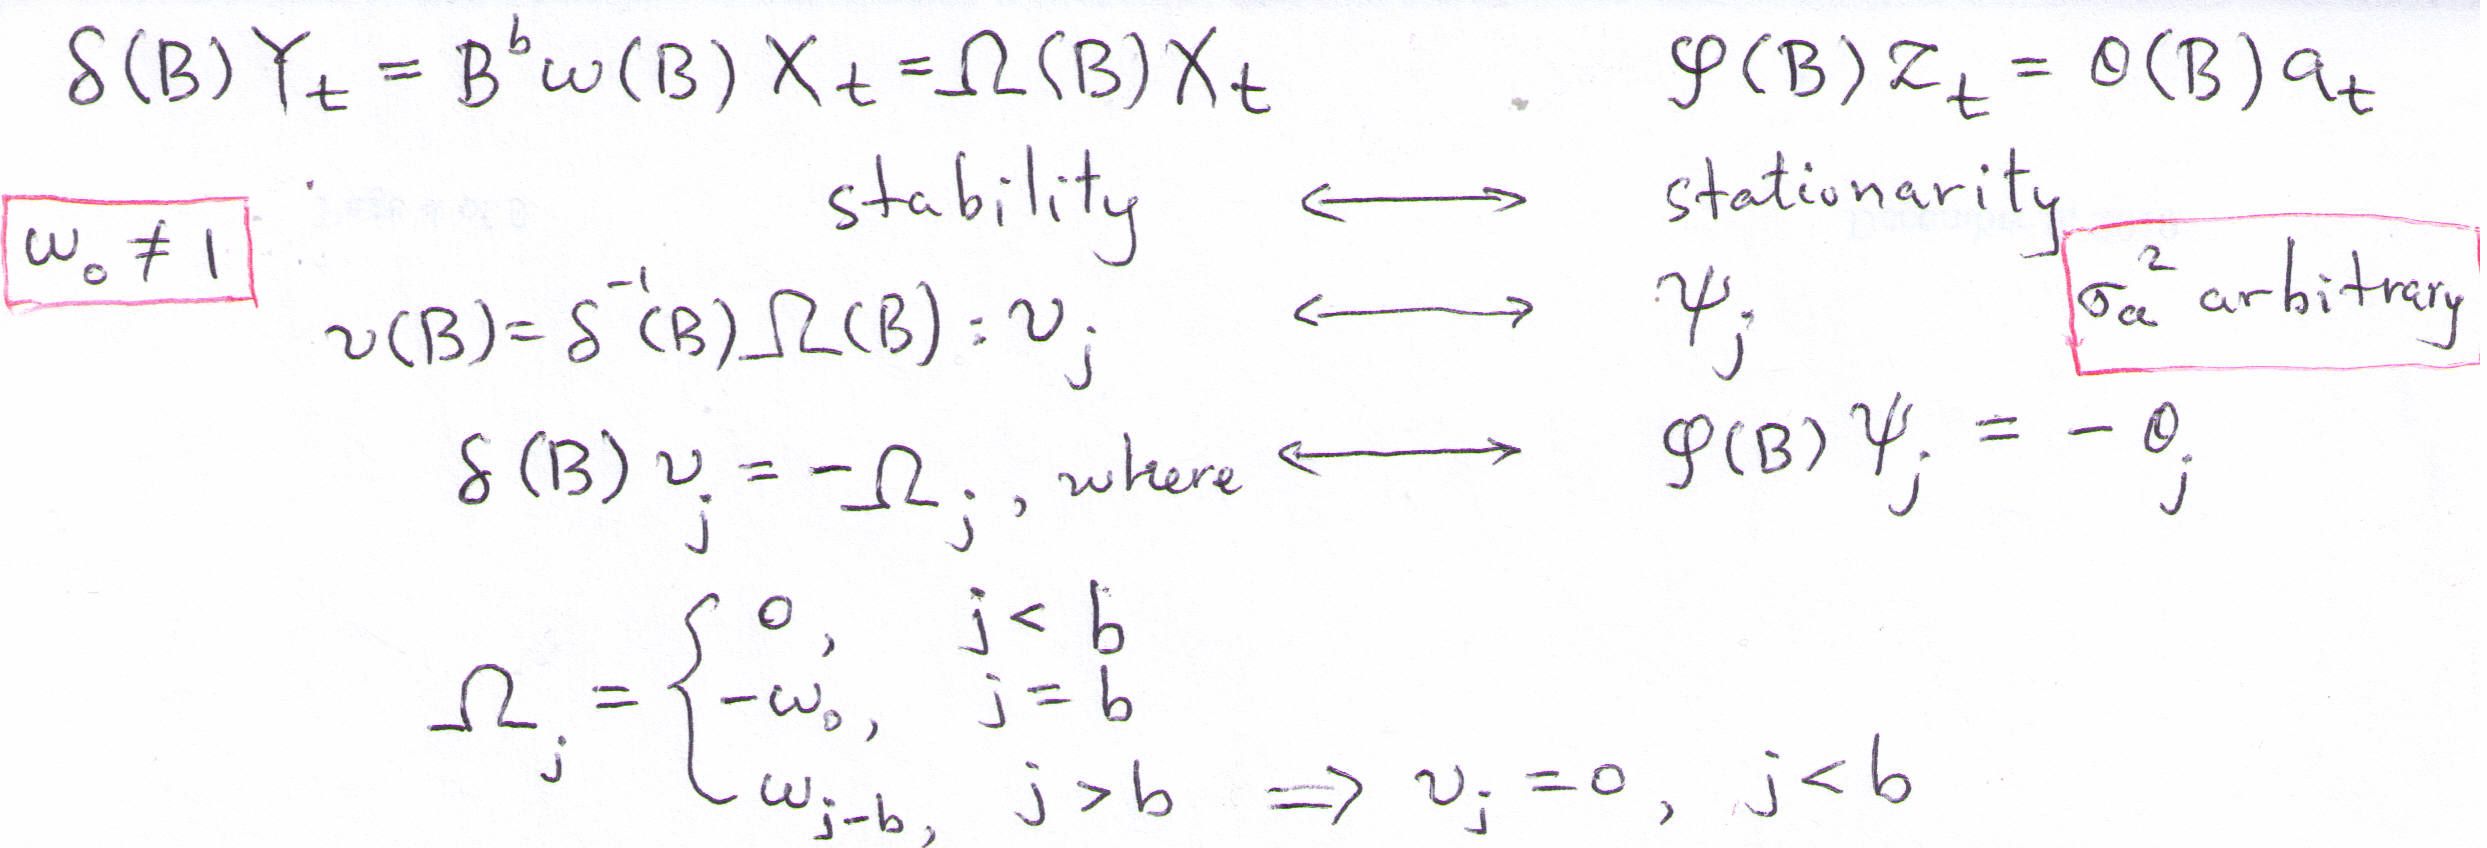 δ(B) Y_t = B^b ω(B) X_t = Ω(B) X_t    φ(B) Z_t = θ(B) a_t
stability ⟷ stationarity
ω_0 ≠ 1
σ_a^2 arbitrary
v(B) = δ^{-1}(B) Ω(B) : v_j ⟷ ψ_j
δ(B) v_j = -Ω_j, where ⟷ φ(B) ψ_j = - θ_j
Ω_j = { 0, j < b
-ω_0, j = b
ω_{j-b}, j > b ⟹ v_j = 0, j < b